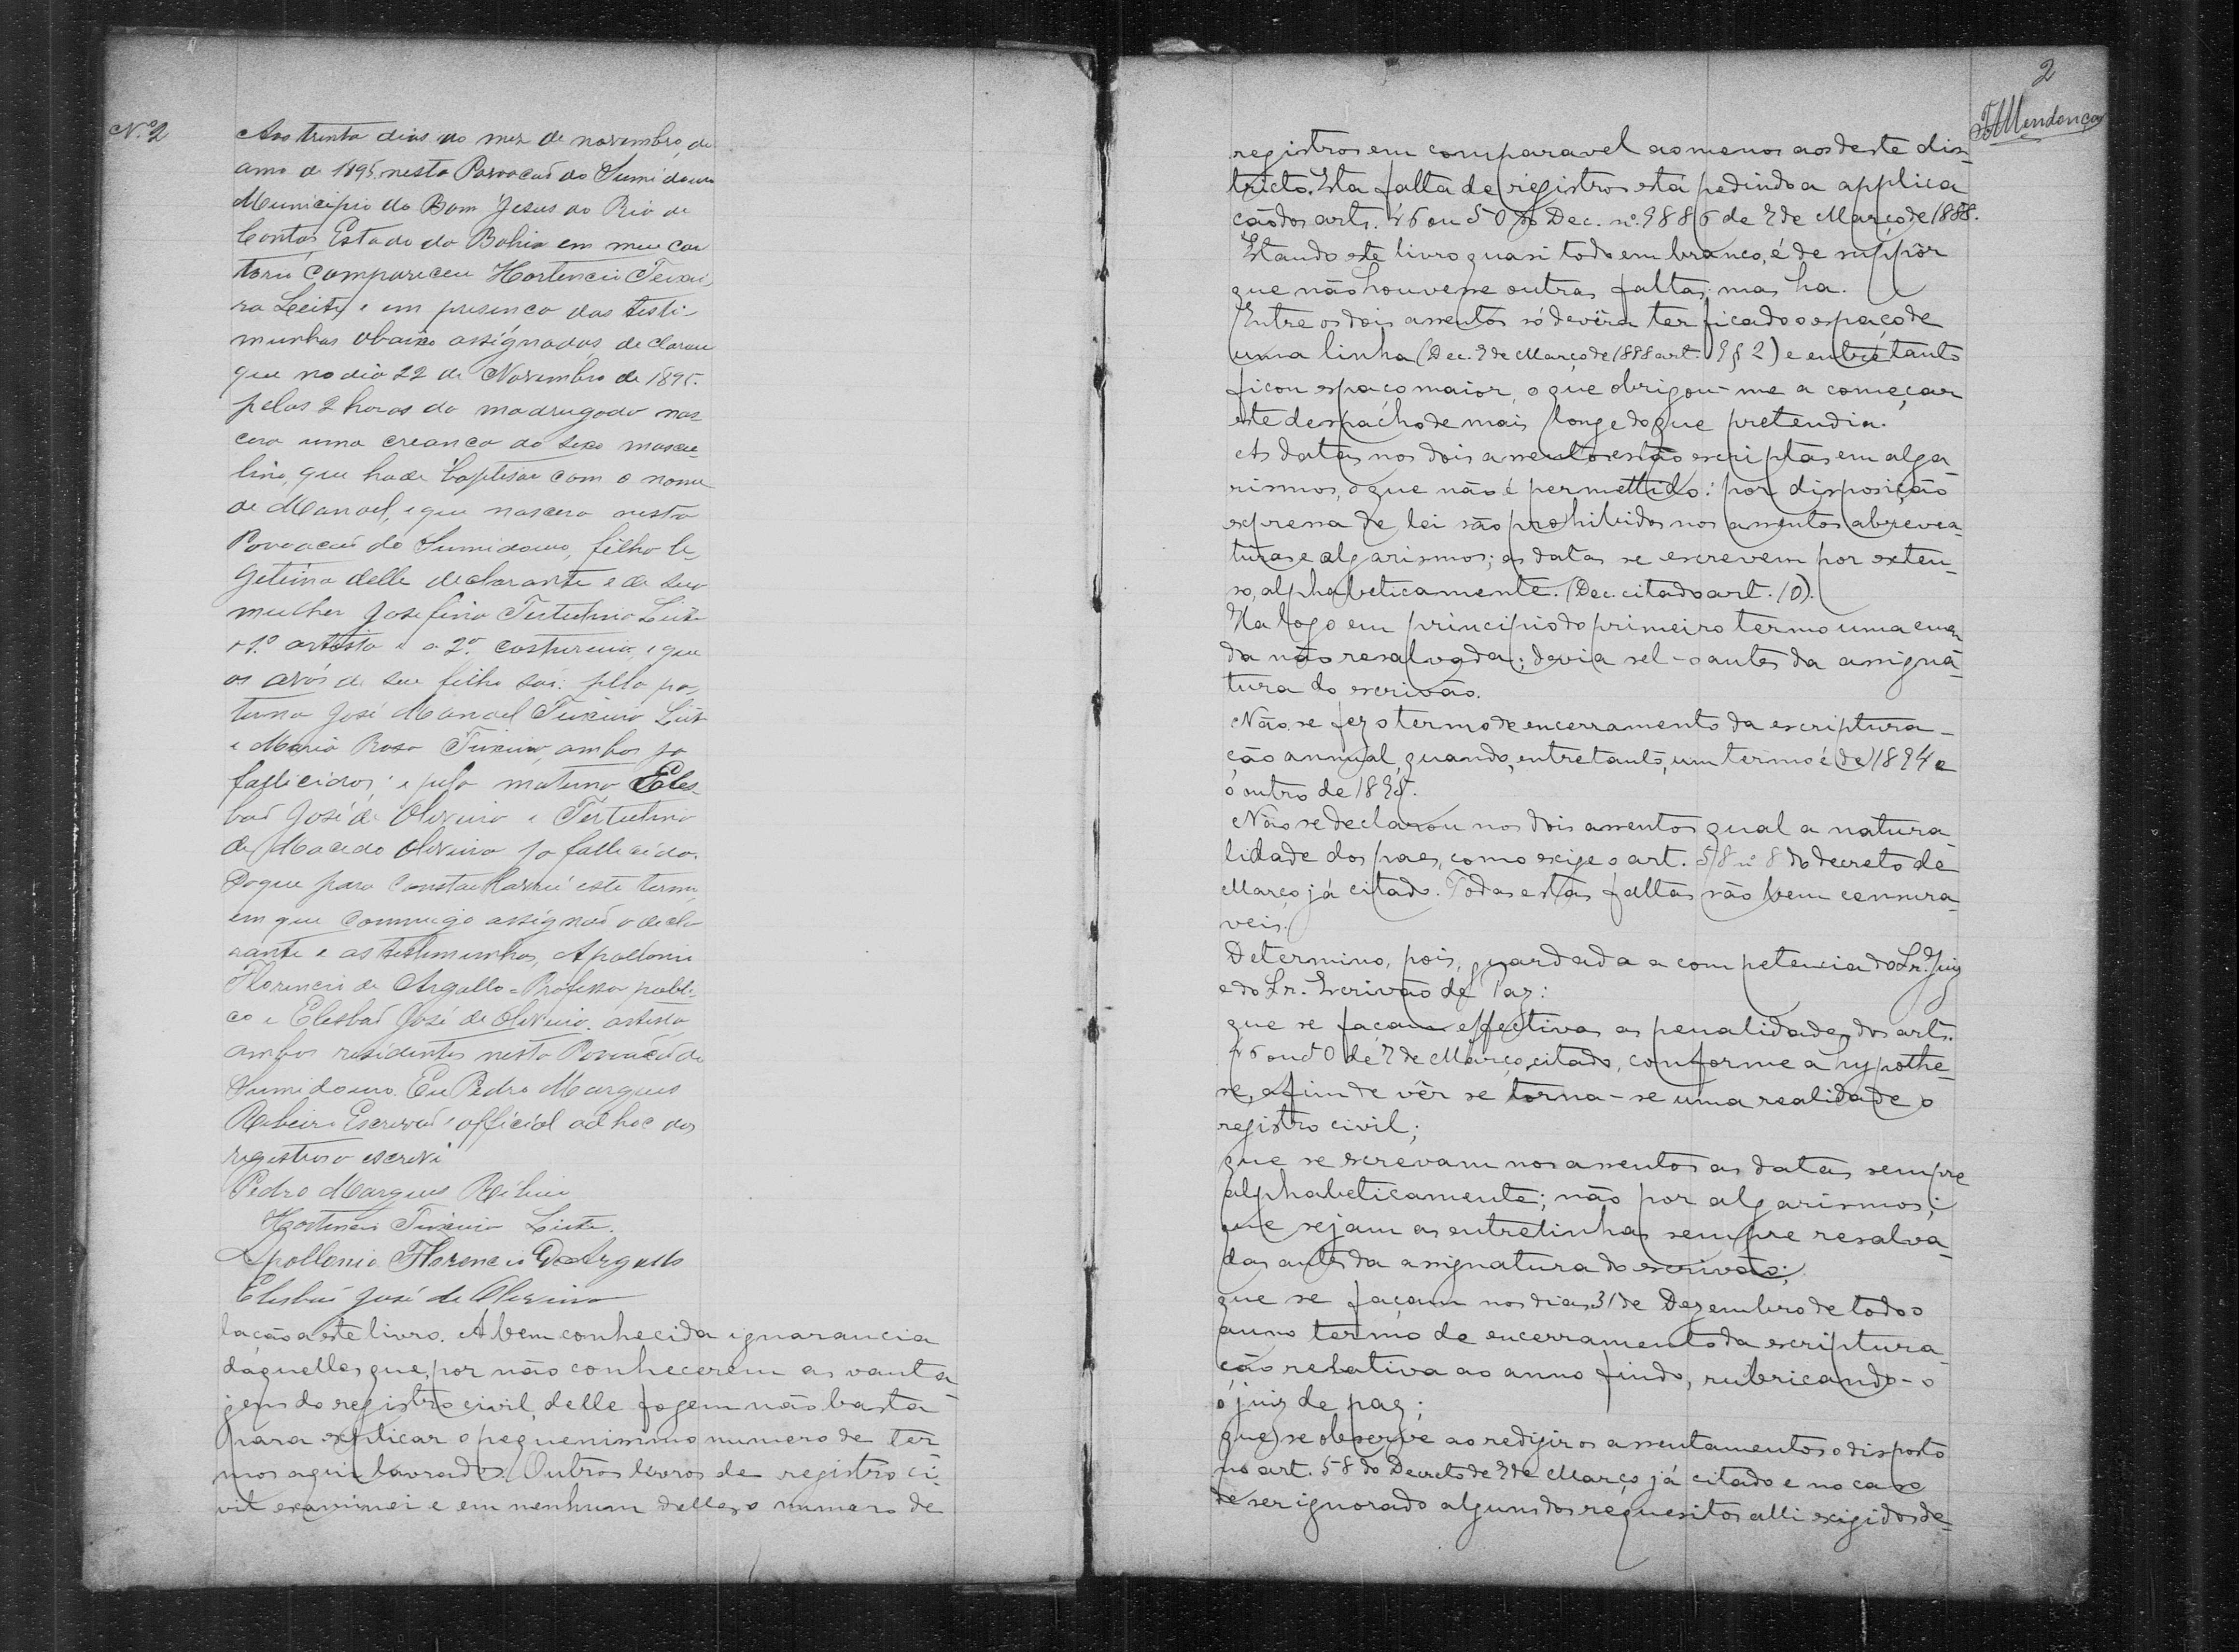 N.º 2
Aos trinta dias do mez de novembro, do
anno de 1895. nesta Povoacaõ do Sumidouro
Municipio do Bom Jesus do Rio de
Contas Estado da Bahia em meu car
torio compareceu Hortencio Teixei,
ra Leite, e em presenca das testi-
munhas abaixo assignadas, declarou
que no dia 22 de Novembro de 1895.
pelas 2 horas da madrugada nas
cera uma creanca do sexo mascu-
lino, que hade baptisar com o nome
de Manoel, e que nascera nesta
Povoacaõ do Sumidouro, filho le-
getimo delle declarante e de sua
mulher Josefina Tertulina Leite
o 1.º artista e a 2.ª costureira, e que
os avós de seu filho saõ: pela pa-
terna José Manoel Teixeira Leite
e Maria Rosa Teixeira, ambos ja
fallicidos; e pela materna Eles-
baõ José de Oliveira e Tertulina
de Macedo Oliveira ja fallecida.
Do que para constar lavrei este termo,
em que commigo assignaõ o decla
rante e as testemunhas, Apollonio
Florencio de Argollo = Professor publi-
co e Elesbaõ José de Oliveira. artista
ambos residentes nesta Povoacaõ do
Sumidouro. Eu Pedro Marques
Ribeiro Escrivaõ e official ad hoc dos
registros o escrevi
Pedro Marques Ribeiro
Hortencio Teixeira Leite.
Apollonio Florencio D'Argollo
Elesbaõ José de Oliveira
lação a este livro. A bem conhecida ignarancia
daquelles que, por não conhecerem as vanta
gens do registro civil, delle fogem não basta
para explicar o pequenissimo numero de ter
mos aqui lavrados. Outros livros de registro ci-
vil examinei e em nenhum delles, o numero de
2
registros em comparavel ao menos aos deste dis-
tricto. Esta falta de registros está pedindo a applica
ção dos arts. 46 ou 50 do Dec. nº. 9886 de 7 de Março de 1888.
Estando este livro quasi todo em branco, é de suppôr
que não houvesse outras faltas: mas ha.
Entre os dois assentos só devêra ter ficado o espaço de
uma linha (Dec. 7 de Março de 1888 art. 9 § 2) e entretanto
ficou espaço maior, o que obrigou-me a começar
este despacho de mais longe do que pretendia.
As datas nos dois assentos estão escriptas em alga-
rismos, o que não é permettido: por disposição
expressa de lei são prohibidos nos assentos abrevea-
turas e algarismos; as datas se escrevem por exten-
so, alphabeticamente. (Dec. citado art. 10).
Ha logo em principio do primeiro termo uma emen
da não resalvada; devia sel-o antes da assigna-
tura do escrivão.
Não se fez o termo de encerramento da escriptura-
ção annual, quando, entretanto, um termo é de 1894 e
o outro de 1895.
Não se declarou nos dois assentos qual a natura
lidade dos paes, como exige o art. 58 nº 8 do decreto de
Março já citado. Todas estas faltas são bem censura
veis.
Determino, pois, guardada a competencia do Sr. Juiz
e do Sr. Escrivão de Paz:
que se façam effectivas as penalidades dos arts.
46 ou 50 de 7 de Março, citado, conforme a hypothe-
se, afim de vêr se torna-se uma realidade o
registro civil;
que se escrevam nos assentos as datas sempre
alphabeticamente; não por algarismos;
que sejam as entrelinhas sempre resalva-
das antes da assignatura do escrivão;
que se façam nos dias 31 de Dezembro de todo o
anno termo de encerramento da escriptura-
ção relativa ao anno findo, rubricando-o
o juiz de paz;
que se observe ao redigir os assentamentos o disposto
no art. 58 do Decreto de 7 de Março já citado e no caso
de ser ignorado algum dos requesitos alli exigidos de-